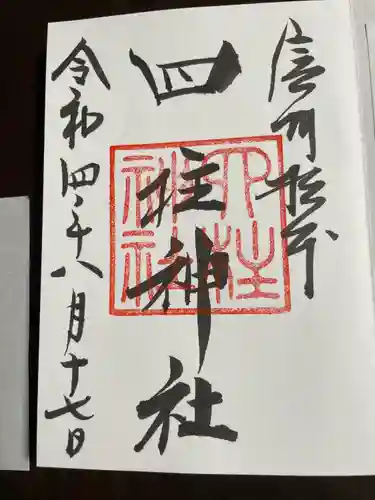 信州松本
四柱神社
四柱
神社
令和四年八月十七日